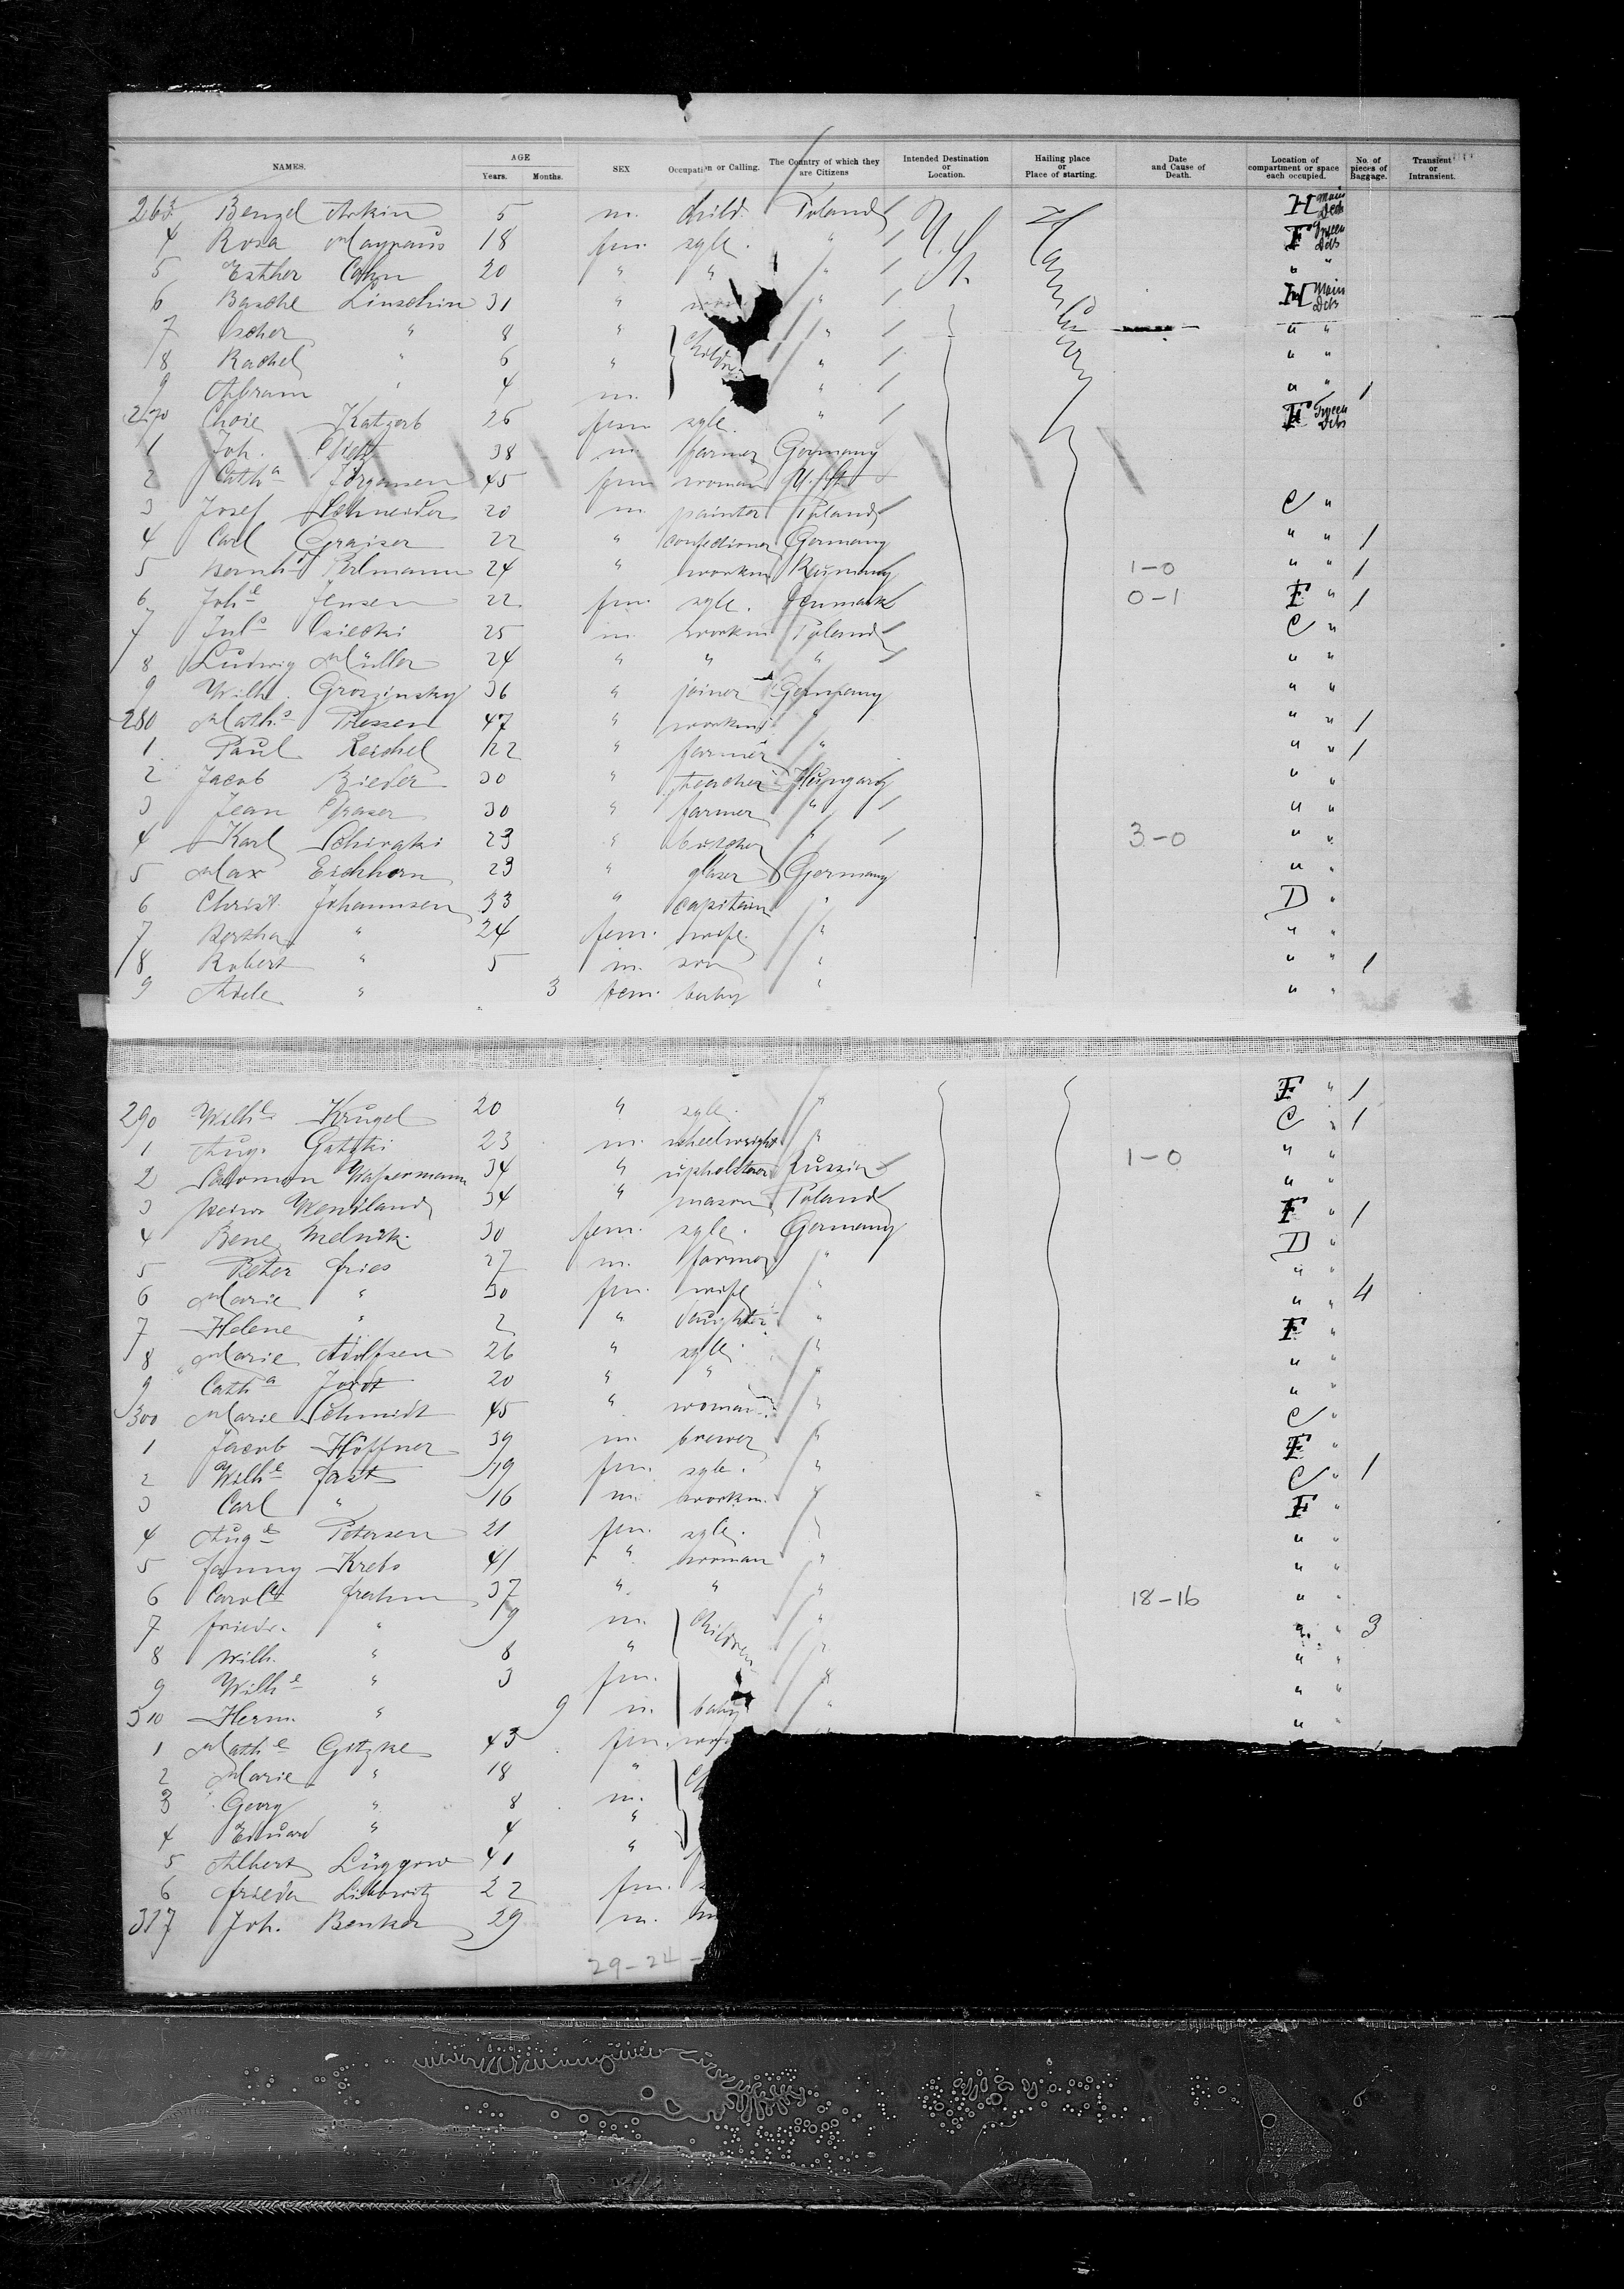 NAMES. AGE Years. Months. SEX Occupation or Calling. The Country of which they are Citizens Intended Destination or Location. Hailing place or Place of starting. Date and Cause of Death. Location of compartment or space each occupied. No. of pieces of Baggage. Transient or Intransient.
263 Bengel Arkin 5 m. child. Poland U. St. Hamburg H Main Deck
4 Rosa 18 fm. sgle. " F Tween Deck
5 Esther Cohn 20 " " " " "
6 Basche Linschin 31 " " H Main Deck
7 Ischer " 8 " " " "
8 Rachel " 6 " Children " " "
9 Abram " 4 m. " " " 1
270 Choie Katzerb 26 fem sgle. " F Tween Deck
1 Joh. 38 m. farmer Germany
2 Catha Jörgensen 45 fem woman U. St.
3 Josef Schneider 20 m. painter Poland C "
4 Carl Graiser 22 " confectioner Germany " " 1
5 Bernhd Perlmann 24 " workm. 1-0 " " 1
6 Johe Jensen 22 fm. sgle. Denmark 0-1 F " 1
7 Juls 25 m. workm Poland C "
8 Ludwig Müller 24 " " " " "
9 Wilh. Groszinsky 36 " joiner Germany " "
280 Maths 47 " workm " " " 1
1 Paul Reichel 22 " farmer " " " 1
2 Jacob Rieder 30 " teacher Hungary " "
3 Jean Graser 30 " farmer " " "
4 Karl Schiraki 23 " butcher " 3-0 " "
5 Max Eichhorn 23 " glaser Germany " "
6 Christ. Johannsen 33 " capitain " D "
7 Bertha " 24 fem. wife " " "
8 Robert " 5 m. son " " " 1
9 Adele " 3 fem. baby " " "
290 Wilhe Krügel 20 " sgle. " F " 1
1 Aug. Gatzki 23 m. wheelwright " C " 1
2 Salomon Wassermann 34 " upholsterer Russia 1-0 " "
3 Wendland 34 " mason Poland " "
4 Bene Melnik 30 fem. sgle. Germany F " 1
5 Peter Fries 27 m. farmer " D "
6 Marie " 30 fm. wife " " "
7 Helene " 2 " daughter " " " 4
8 Marie Adolfsen 26 " sgle. " F "
9 Catha Jordt 20 " " " " "
300 Marie Schmidt 45 " woman " " "
1 Jacob Höffner 39 m. brewer " C "
2 Wilhe Fast 19 fm. sgle. " F "
3 Carl " 16 m. workm. " C " 1
4 Auge Petersen 21 fm. sgle. " F "
5 Fanny Krebs 41 " woman " " "
6 Frahm 37 " " " 18-16 " "
7 Friedr. " 9 m. Children " " "
8 Wilh. " 8 " " " " 3
9 Wilhe " 3 fm. " " "
310 Herm. " 9 m. baby " " "
1 Mathe Gitzke 43 fm. "
2 Marie " 18 "
3 Georg " 8 m.
4 Eduard " 4 "
5 Albert Lüggow 41 "
6 Frieda 22 fm.
317 Joh. Benker 29 m.
29-24-